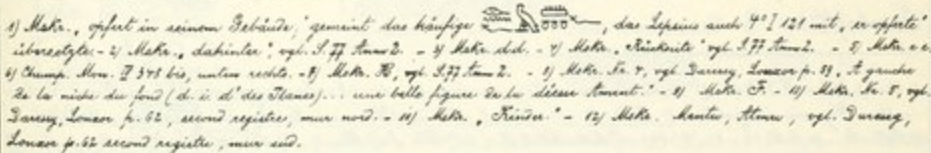 1) Mskr. „opfert in seinem Gebäude“, gemeint das häufige , das Lepsius auch 4° I 121 mit „er opferte“
übersetzte. - 2) Mskr. „dahinter“, vgl. S. 77 Anm 2. - 3) Mskr. dd. - 4) Mskr. „Rückseite“ vgl. S. 77 Anm 2. - 5) Mskr. e e.
6) Champ. Mon. IV 345 bis, unten rechts. - 7) Mskr. , vgl. S. 77 Anm 2. - 8) Mskr. Nr. 4, vgl. Daressy, Louxor p. 53 „A gauche
de la niche du fond (d. i. d' des Planes)... une belle figure de la déesse Ament.“ - 9) Mskr. F. - 10) Mskr. Nr. 8, vgl.
Daressy, Louxor p. 62, second registre, mur nord. - 11) Mskr. „Kinder.“ - 12) Mskr. Mentu, Atmu, vgl. Daressy,
Louxor p. 62 second registre, mur sud.